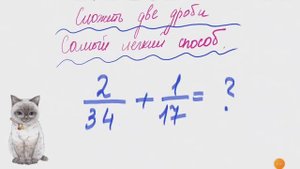 Сложить две дроби
Самый легкий способ.
2/34 + 1/17 = ?